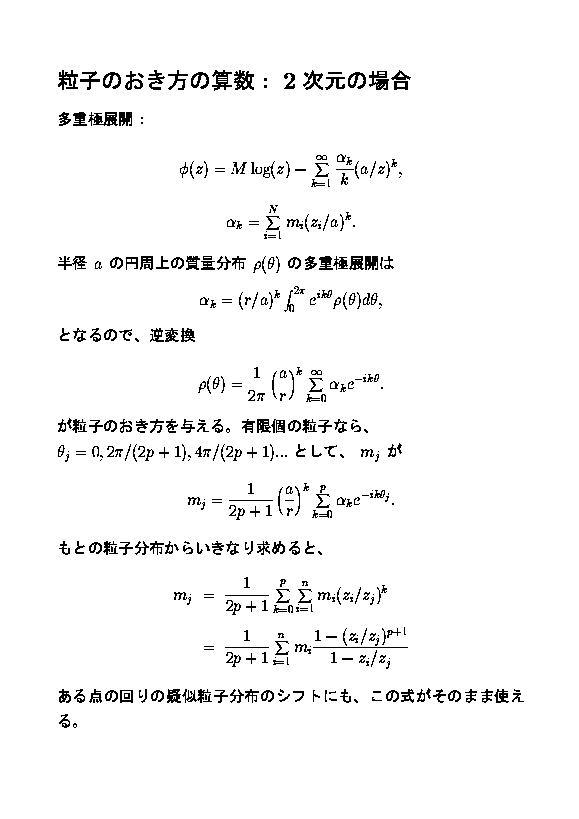 粒子のおき方の算数： 2 次元の場合
多重極展開：
$$\phi(z) = M \log(z) - \sum_{k=1}^{\infty} \frac{\alpha_k}{k} (a/z)^k,$$
$$\alpha_k = \sum_{i=1}^{N} m_i (z_i/a)^k.$$
半径 $a$ の円周上の質量分布 $\rho(\theta)$ の多重極展開は
$$\alpha_k = (r/a)^k \int_0^{2\pi} e^{ik\theta} \rho(\theta) d\theta,$$
となるので、逆変換
$$\rho(\theta) = \frac{1}{2\pi} \left(\frac{a}{r}\right)^k \sum_{k=0}^{\infty} \alpha_k e^{-ik\theta}.$$
が粒子のおき方を与える。有限個の粒子なら、
$\theta_j = 0, 2\pi/(2p+1), 4\pi/(2p+1)...$ として、 $m_j$ が
$$m_j = \frac{1}{2p+1} \left(\frac{a}{r}\right)^k \sum_{k=0}^{p} \alpha_k e^{-ik\theta_j}.$$
もとの粒子分布からいきなり求めると、
$$m_j = \frac{1}{2p+1} \sum_{k=0}^{p} \sum_{i=1}^{n} m_i (z_i/z_j)^k$$
$$= \frac{1}{2p+1} \sum_{i=1}^{n} m_i \frac{1-(z_i/z_j)^{p+1}}{1-z_i/z_j}$$
ある点の回りの疑似粒子分布のシフトにも、この式がそのまま使え
る。